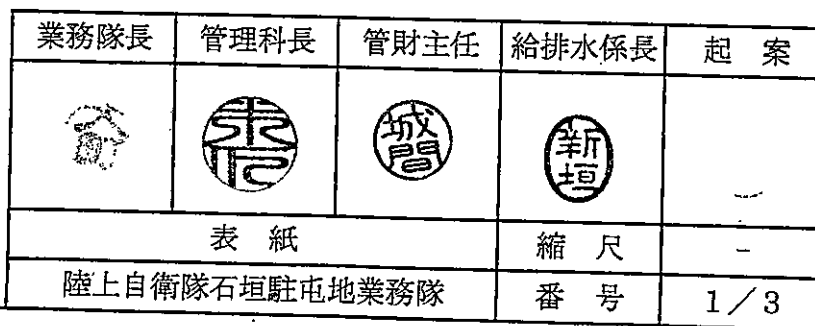 業務隊長 管理科長 管財主任 給排水係長 起案
城間 新垣
表紙 縮尺 -
陸上自衛隊石垣駐屯地業務隊 番号 1/3